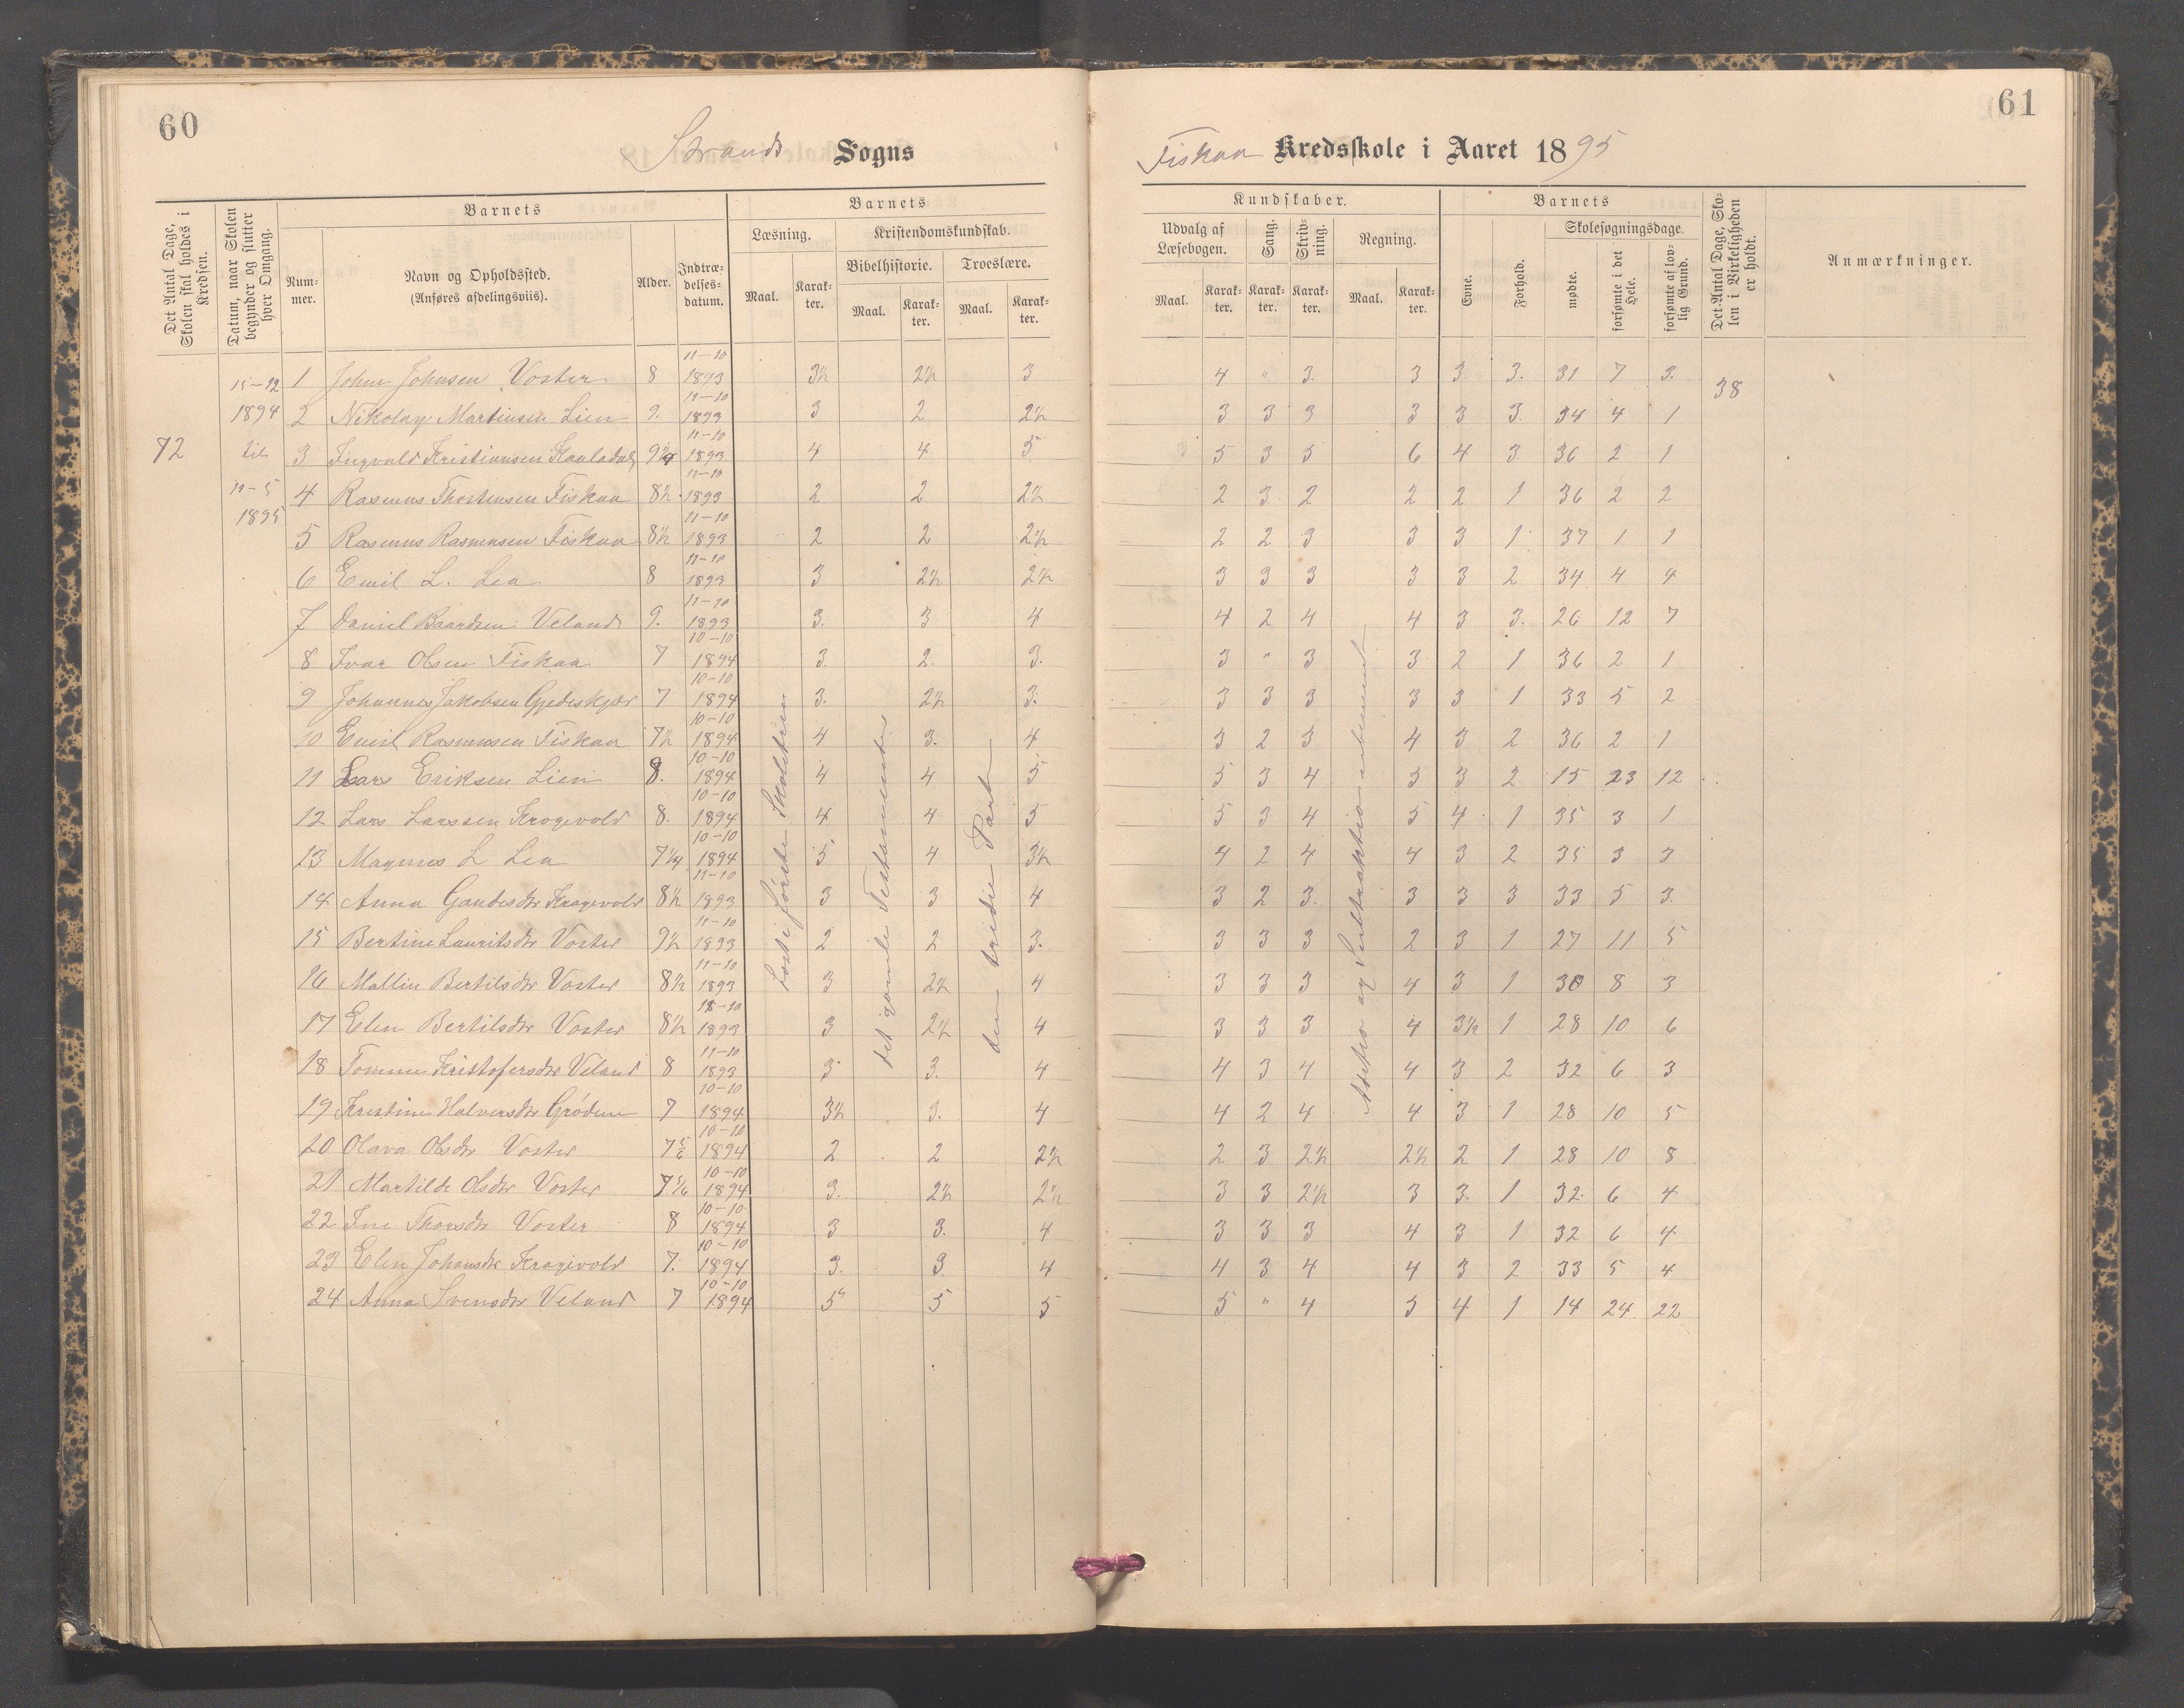 60
61
Strands Sogns
Fiskaa Kredsskole i Aaret 1895
Det Antal Dage, Skolen skal holdes i Kredsen.
Datum, naar Skolen begynder og slutter hver Omgang.
Barnets
Nummer.
Navn og Opholdssted.
(Anføres afdelingsviis).
Alder.
Indtrædelsesdatum.
Barnets
Læsning.
Maal.
Karakter.
Kristendomskundskab.
Bibelhistorie.
Maal.
Karakter.
Troeslære.
Maal.
Karakter.
Kundskaber.
Udvalg af Læsebogen.
Maal.
Karakter.
Sang.
Karakter.
Skrivning.
Karakter.
Regning.
Maal.
Karakter.
Barnets
Evne.
Forhold.
Skolesøgningsdage.
mødte.
forsømte i det Hele.
forsømte af lovlig Grund.
Det Antal Dage, Skolen i Virkeligheden er holdt.
Anmærkninger.
72
15-12 1894 til 10-5 1895
38
1 John Johnsen Voster 8 11-10 1893 3½ 2½ 3 4 " 3. 3 3. 3. 31 7 3.
2 Nikolay Martinsen Lien 9. 11-10 1893 3 2 2½ 3 3 3 3 3 3. 34 4 1
3 Ingvald Kristiansen 9¼ 11-10 1893 4 4 5 5 3 5 6 4 3 36 2 1
4 Rasmus Thorstensen Fiskaa 8½ 11-10 1893 2 2 2½ 2 3 2 2 2 1 36 2 2
5 Rasmus Rasmusen Fiskaa 8½ 11-10 1893 2 2 2½ 2 2 3 3 3 1 37 1 1
6 Emil L. Lea 8 11-10 1893 3 2½ 2½ 3 3 3 3 3 2 34 4 4
7 Daniel Baardsen Veland 9. 11-10 1893 3. 3 4 4 2 4 4 3 3. 26 12 7
8 Ivar Olsen Fiskaa 7 10-10 1894 3. 2. 3. 3 " 3 3 2 1 36 2 1
9 Johannes Jakobsen Gjedeskjær 7 10-10 1894 3. 2½ 3. 3 3 3 3 3 1 33 5 2
10 Emil Rasmusen Fiskaa 7½ 10-10 1894 4 3. 4 3 2 3 4 3 2 36 2 1
11 Lars Eriksen Lien 8. 10-10 1894 4 4 5 5 3 4 5 3 2 15 23 12
12 Lars Larssen Krogevold 8. 10-10 1894 4 4 5 5 3 4 5 4 1 35 3 1
13 Magnus L Lea 7¼ 10-10 1894 5 4 3½ 4 2 4 4 3 2 35 3 3
14 Anna Gautesdtr Krogevold 8½ 11-10 1893 3 3 4 3 2 3. 3 3 3 33 5 3.
15 Bertine Lauritsdtr Voster 9½ 11-10 1893 2 2 3. 3 3 3 2 3 1 27 11 5
16 Mallin Bertilsdtr Voster 8½ 11-10 1893 3 2½ 4 3 3 3 4 3 1 30 8 3
17 Elen Bertilsdtr Voster 8½ 11-10 1893 3 2½ 4 3 3 3 4 3½ 1 28 10 6
18 Tomine Kristofersdtr Veland 8 11-10 1893 3 3. 4 4 3 4 4 3 2 32 6 3
19 Kristine Halversdtr Grødem 7 10-10 1894 3½ 3. 4 4 2 4 4 3 1 28 10 5
20 Olava Olsdtr Voster 7 5/6 10-10 1894 2 2 2½ 2 3 2½ 2½ 2 1 28 10 8
21 Martilde Olsdtr Voster 7 1/6 10-10 1894 3. 2½ 2½ 3 3 2½ 3 3. 1 32 6 4
22 Ine Thorsdtr Voster 8 10-10 1894 3 3. 4 3 3 3 4 3 1 32 6 4
23 Elen Johansdtr Krogevold 7. 10-10 1894 3. 3. 4 4 3 4 4 3 2 33 5 4
24 Anna Svensdtr Veland 7 10-10 1894 5 5 5 5 " 4 5 4 1 14 24 22
første Skoletrin
det gamle Testamente
den tredie Part
og Subtraktion